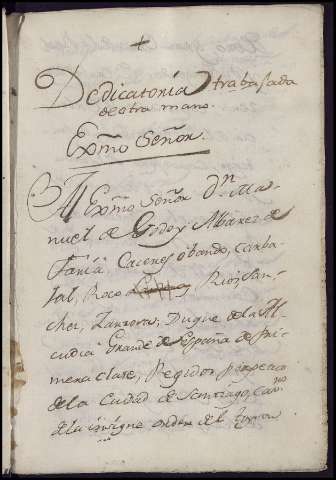 +
Dedicatoria trabajada
de otra mano.
Exmo Señor.
Al Exmo Señor Dn. Ma-
nuel de Godoy Albarez de
Faria, Caceres obando, Carba-
jal, Roco Rios, San-
chez, Zarzoza, Duque de la Al-
cudia Grande de España de pri-
mera clase, Regidor perpetuo
de la Ciudad de Santiago, Cavro
de la insigne orden del toyson